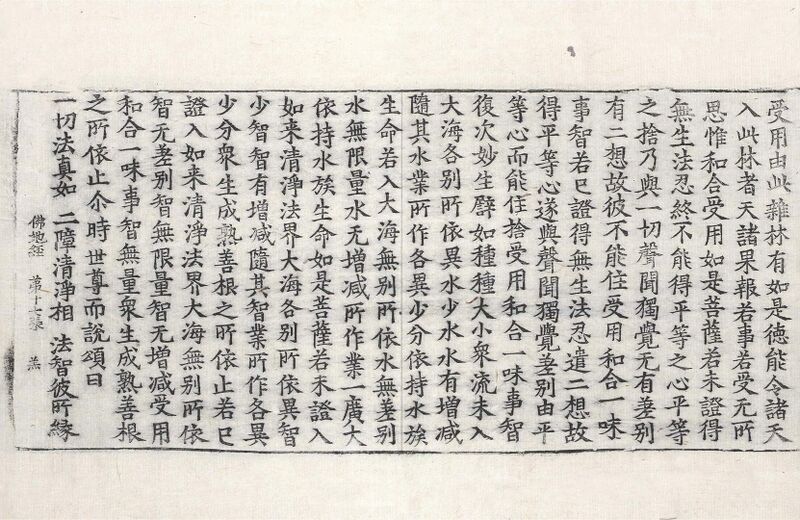 受用由此雜林有如是德能令諸天
入此林者天諸果報若事若受无所
思惟和合受用如是菩薩若未證得
無生法忍終不能得平等之心平等
之捨乃與一切聲聞獨覺无有差別
有二想故彼不能住受用和合一味
事智若已證得無生法忍遣二想故
得平等心遂與聲聞獨覺差別由平
等心而能住捨受用和合一味事智
復次妙生譬如種種大小衆流未入
大海各別所依異水少水水有增減
隨其水業所作各異少分依持水族
生命若入大海無別所依水無差別
水無限量水无增減所作業一廣大
依持水族生命如是菩薩若未證入
如来清淨法界大海各別所依異智
少智智有增減隨其智業所作各異
少分衆生成熟善根之所依止若已
證入如来清淨法界大海無別所依
智无差別智無限量智无增減受用
和合一味事智無量衆生成熟善根
之所依止尒時世尊而說頌曰
一切法真如 二障清淨相 法智彼所緣
佛地經 第十七張 羔